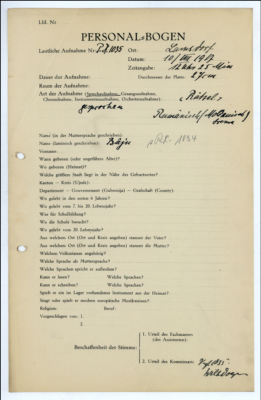 Lfd. Nr.
PERSONAL-BOGEN
Lautliche Aufnahme Nr.: P.K. 1035 Ort: Lamsdorf
Datum: 10/VIII 1917
Zeitangabe: 12 Uhr 25 Min
Dauer der Aufnahme: Durchmesser der Platte: 27 cm
Raum der Aufnahme:
Art der Aufnahme (Sprechaufnahme, Gesangsaufnahme, „Rätsel“
Choraufnahme, Instrumentenaufnahme, Orchesteraufnahme):
gesprochen Rumänisch
Name (in der Muttersprache geschrieben):
Name (lateinisch geschrieben):
Vorname:
Wann geboren (oder ungefähres Alter)?
Wo geboren (Heimat)?
Welche größere Stadt liegt in der Nähe des Geburtsortes?
Kanton — Kreis (Ujedz):
Departement — Gouvernement (Gubernija) — Grafschaft (County):
Wo gelebt in den ersten 6 Jahren?
Wo gelebt vom 7. bis 20. Lebensjahr?
Was für Schulbildung?
Wo die Schule besucht?
Wo gelebt vom 20. Lebensjahr?
Aus welchem Ort (Ort und Kreis angeben) stammt der Vater?
Aus welchem Ort (Ort und Kreis angeben) stammt die Mutter?
Welchem Volksstamm angehörig?
Welche Sprache als Muttersprache?
Welche Sprachen spricht er außerdem?
Kann er lesen? Welche Sprachen?
Kann er schreiben? Welche Sprachen?
Spielt er ein im Lager vorhandenes Instrument aus der Heimat?
Singt oder spielt er modern europäische Musikweisen?
Religion: Beruf:
Vorgeschlagen von: 1.
2.
Beschaffenheit der Stimme:
1. Urteil des Fachmannes
(des Assistenten):
2. Urteil des Kommissars: